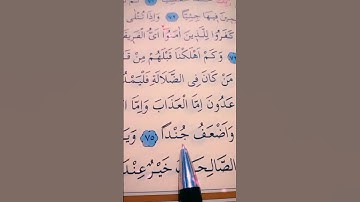 ـينَ فِيهَا جِثِيًّا ٧٢ وَاِذَا تُتْلٰى
كَفَرُوا لِلَّذِينَ اٰمَنُٓوا اَيُّ الْفَرِيقَـ
٧٣ وَكَمْ اَهْلَكْنَا قَبْلَهُمْ مِنْ قَـ
مَنْ كَانَ فِي الضَّلَالَةِ فَلْيَمْدُ
عَدُونَ اِمَّا الْعَذَابَ وَاِمَّا ا
وَاَضْعَفُ جُنْدًا ٧٥ وَيَـ
خَيْرٌ عِنْدَ